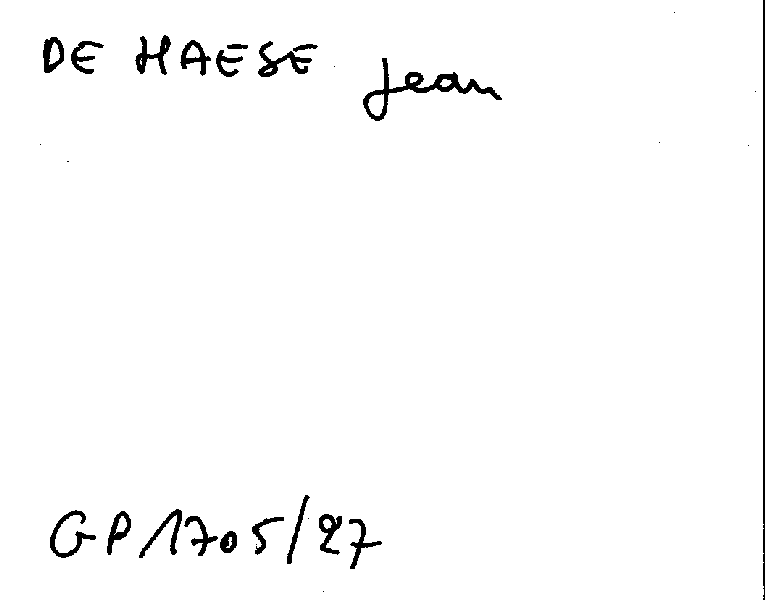 DE HAESE Jean
GP 1705/27